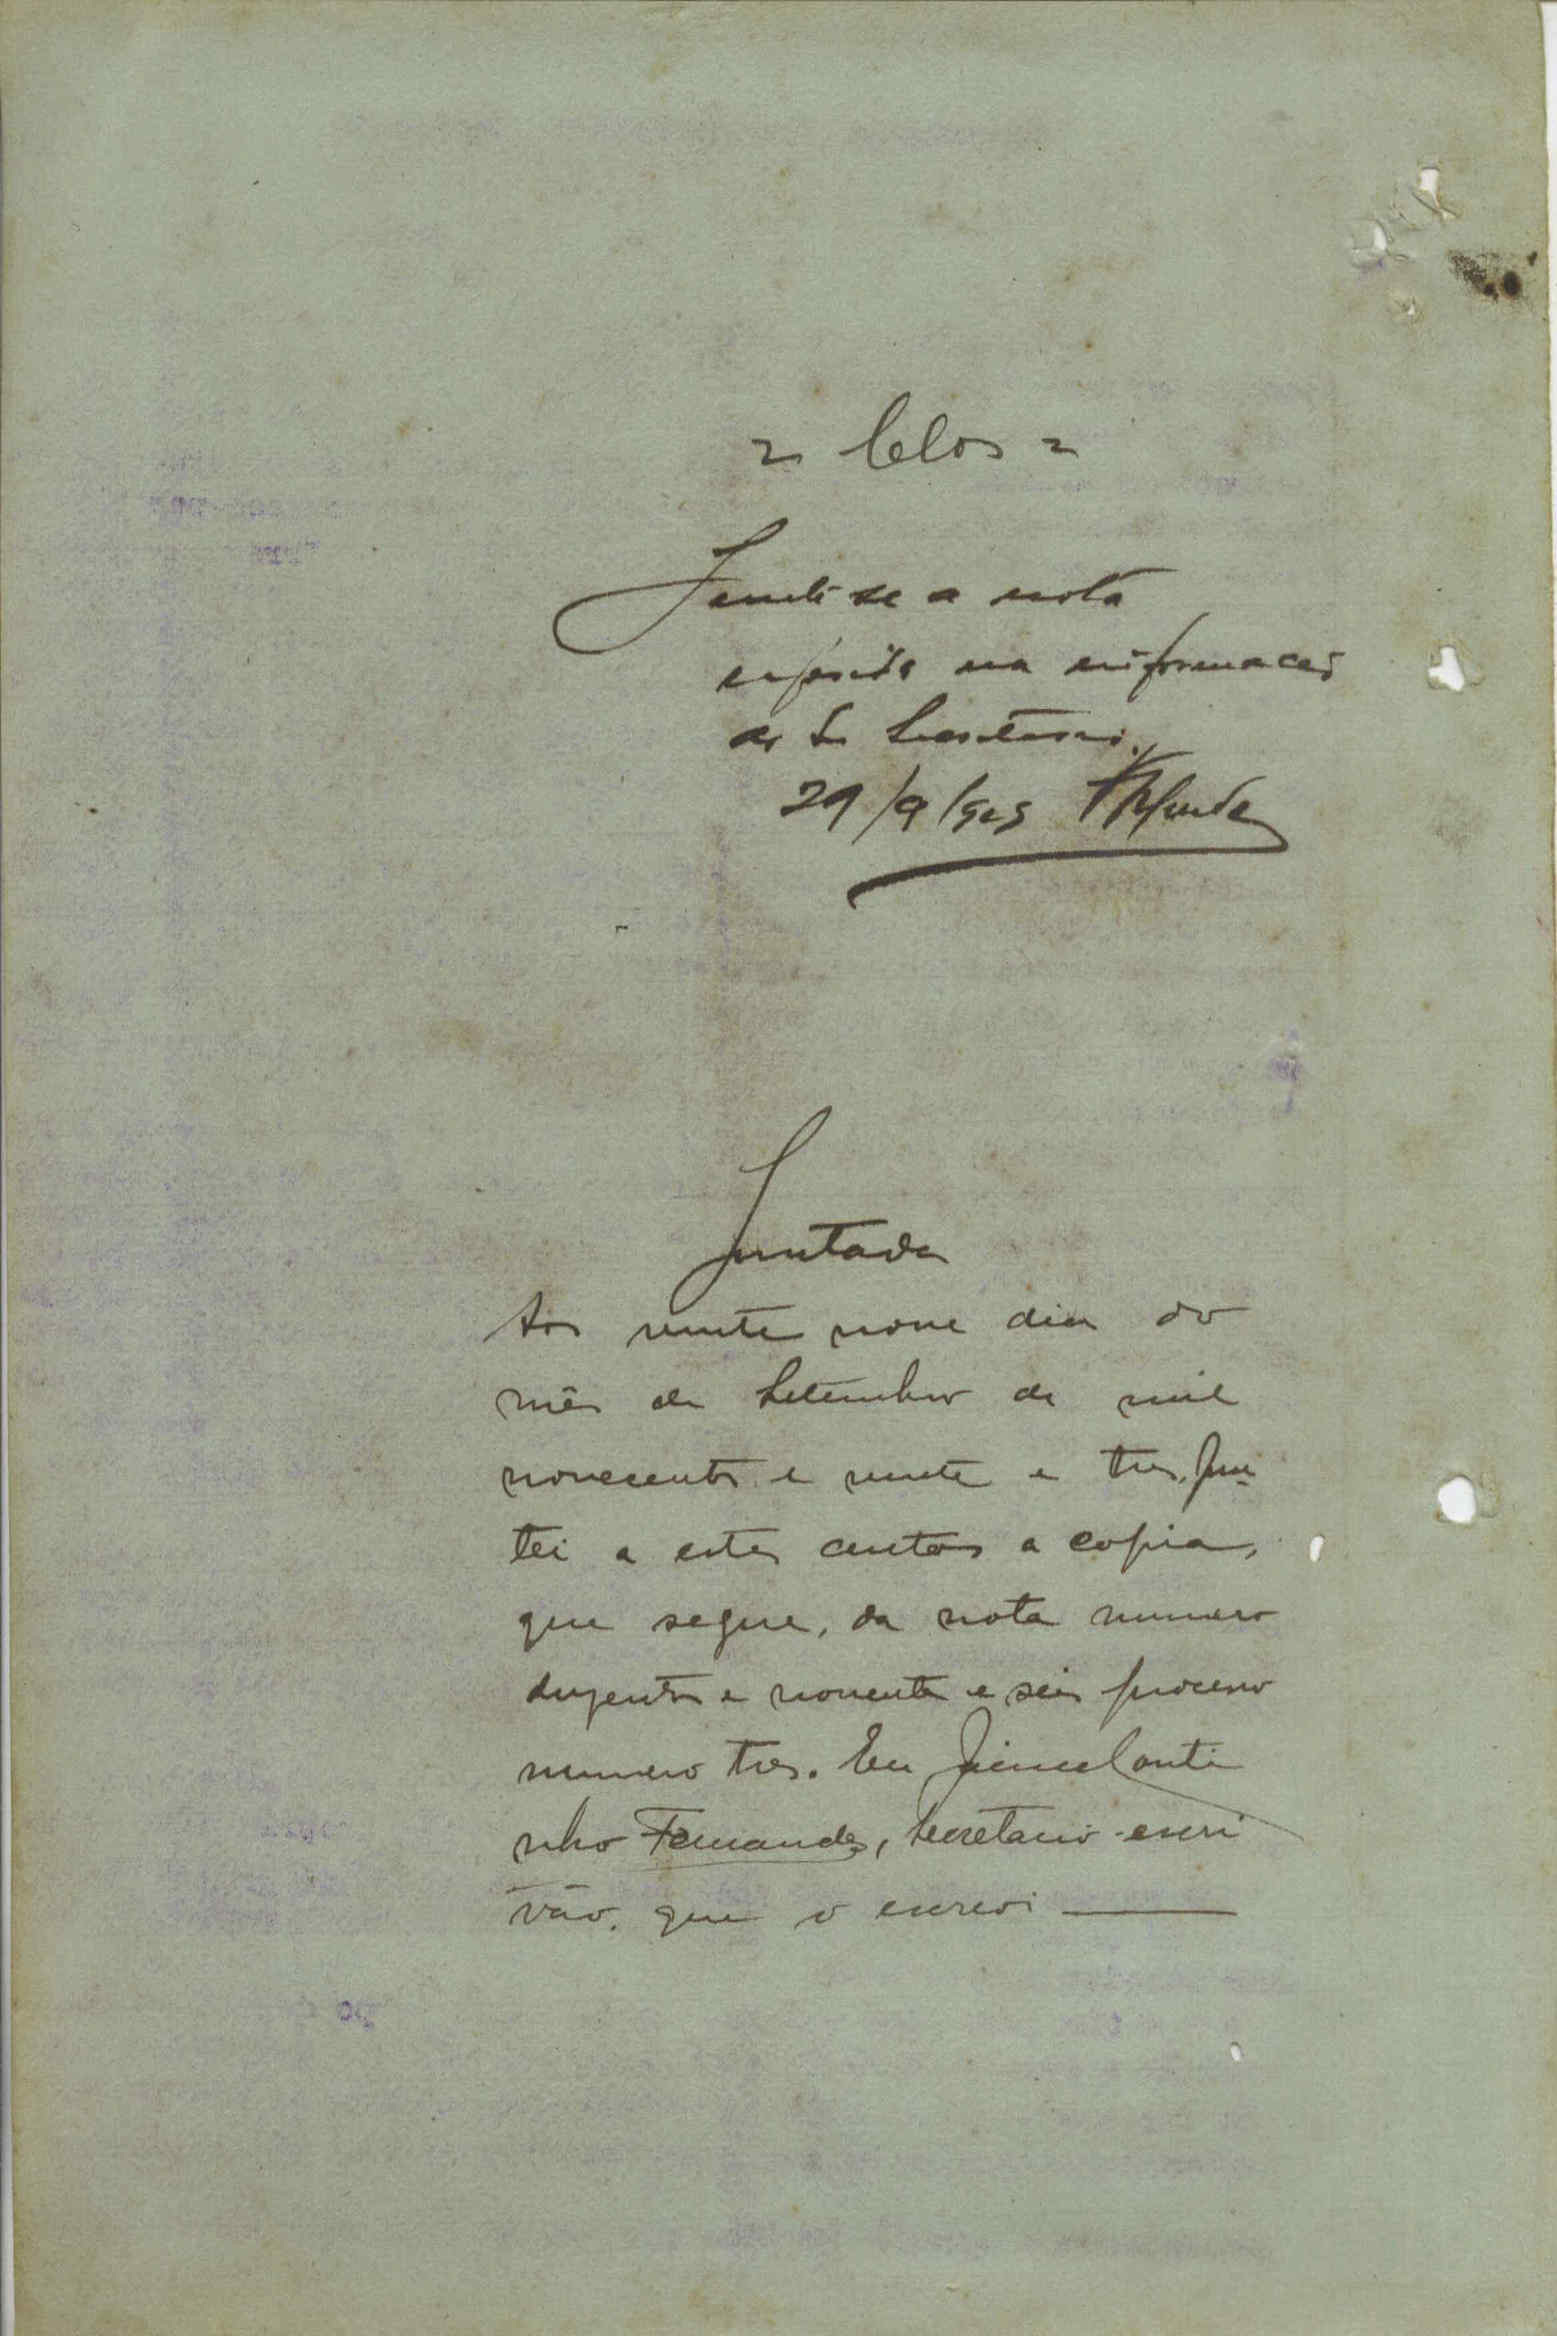 = Clos =
Junte-se a nota
referida na informação
do Sr Secretario.
29/9/923
Juntada
Aos vinte nove dia do
mês de Setembro de mil
novecentos e vinte e tres, jun-
tei a estes autos a copia,
que segue, da nota numero
duzentos e noventa e seis processo
numero tres. Eu Couti
nho Fernandes, Secretario-escri
vão, que o escrevi